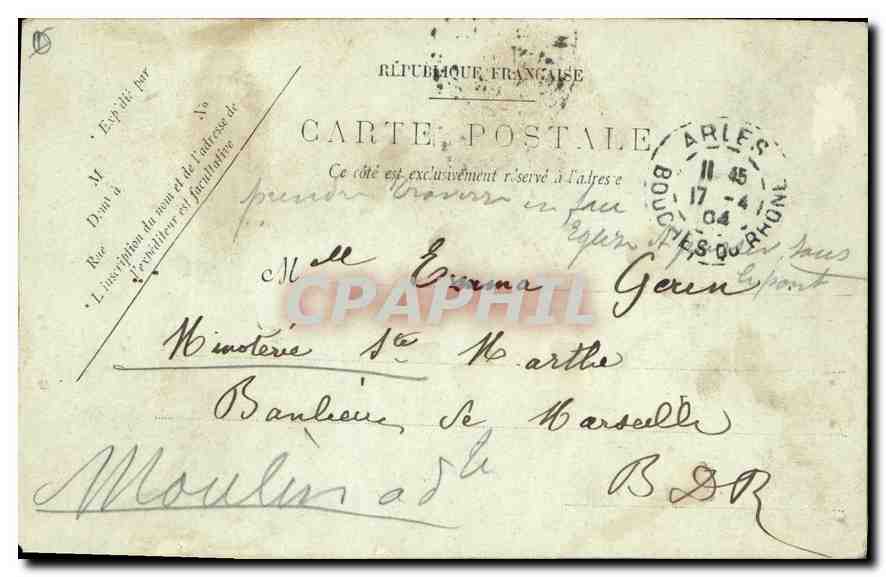 RÉPUBLIQUE FRANÇAISE
CARTE POSTALE
Ce côté est exclusivement réservé à l'adresse
Expédié par
M
Demt à
Rue No
L'inscription du nom et de l'adresse de
l'expéditeur est facultative
ARLES
11 45
17 -4
04
BOUCHES DU RHÔNE
prendre traverse en face
Eglise sous
le pont
Mlle Emma Geren
Minoterie Ste Marthe
Banlieue de Marseille
BDR
Moulin
CPAPHIL